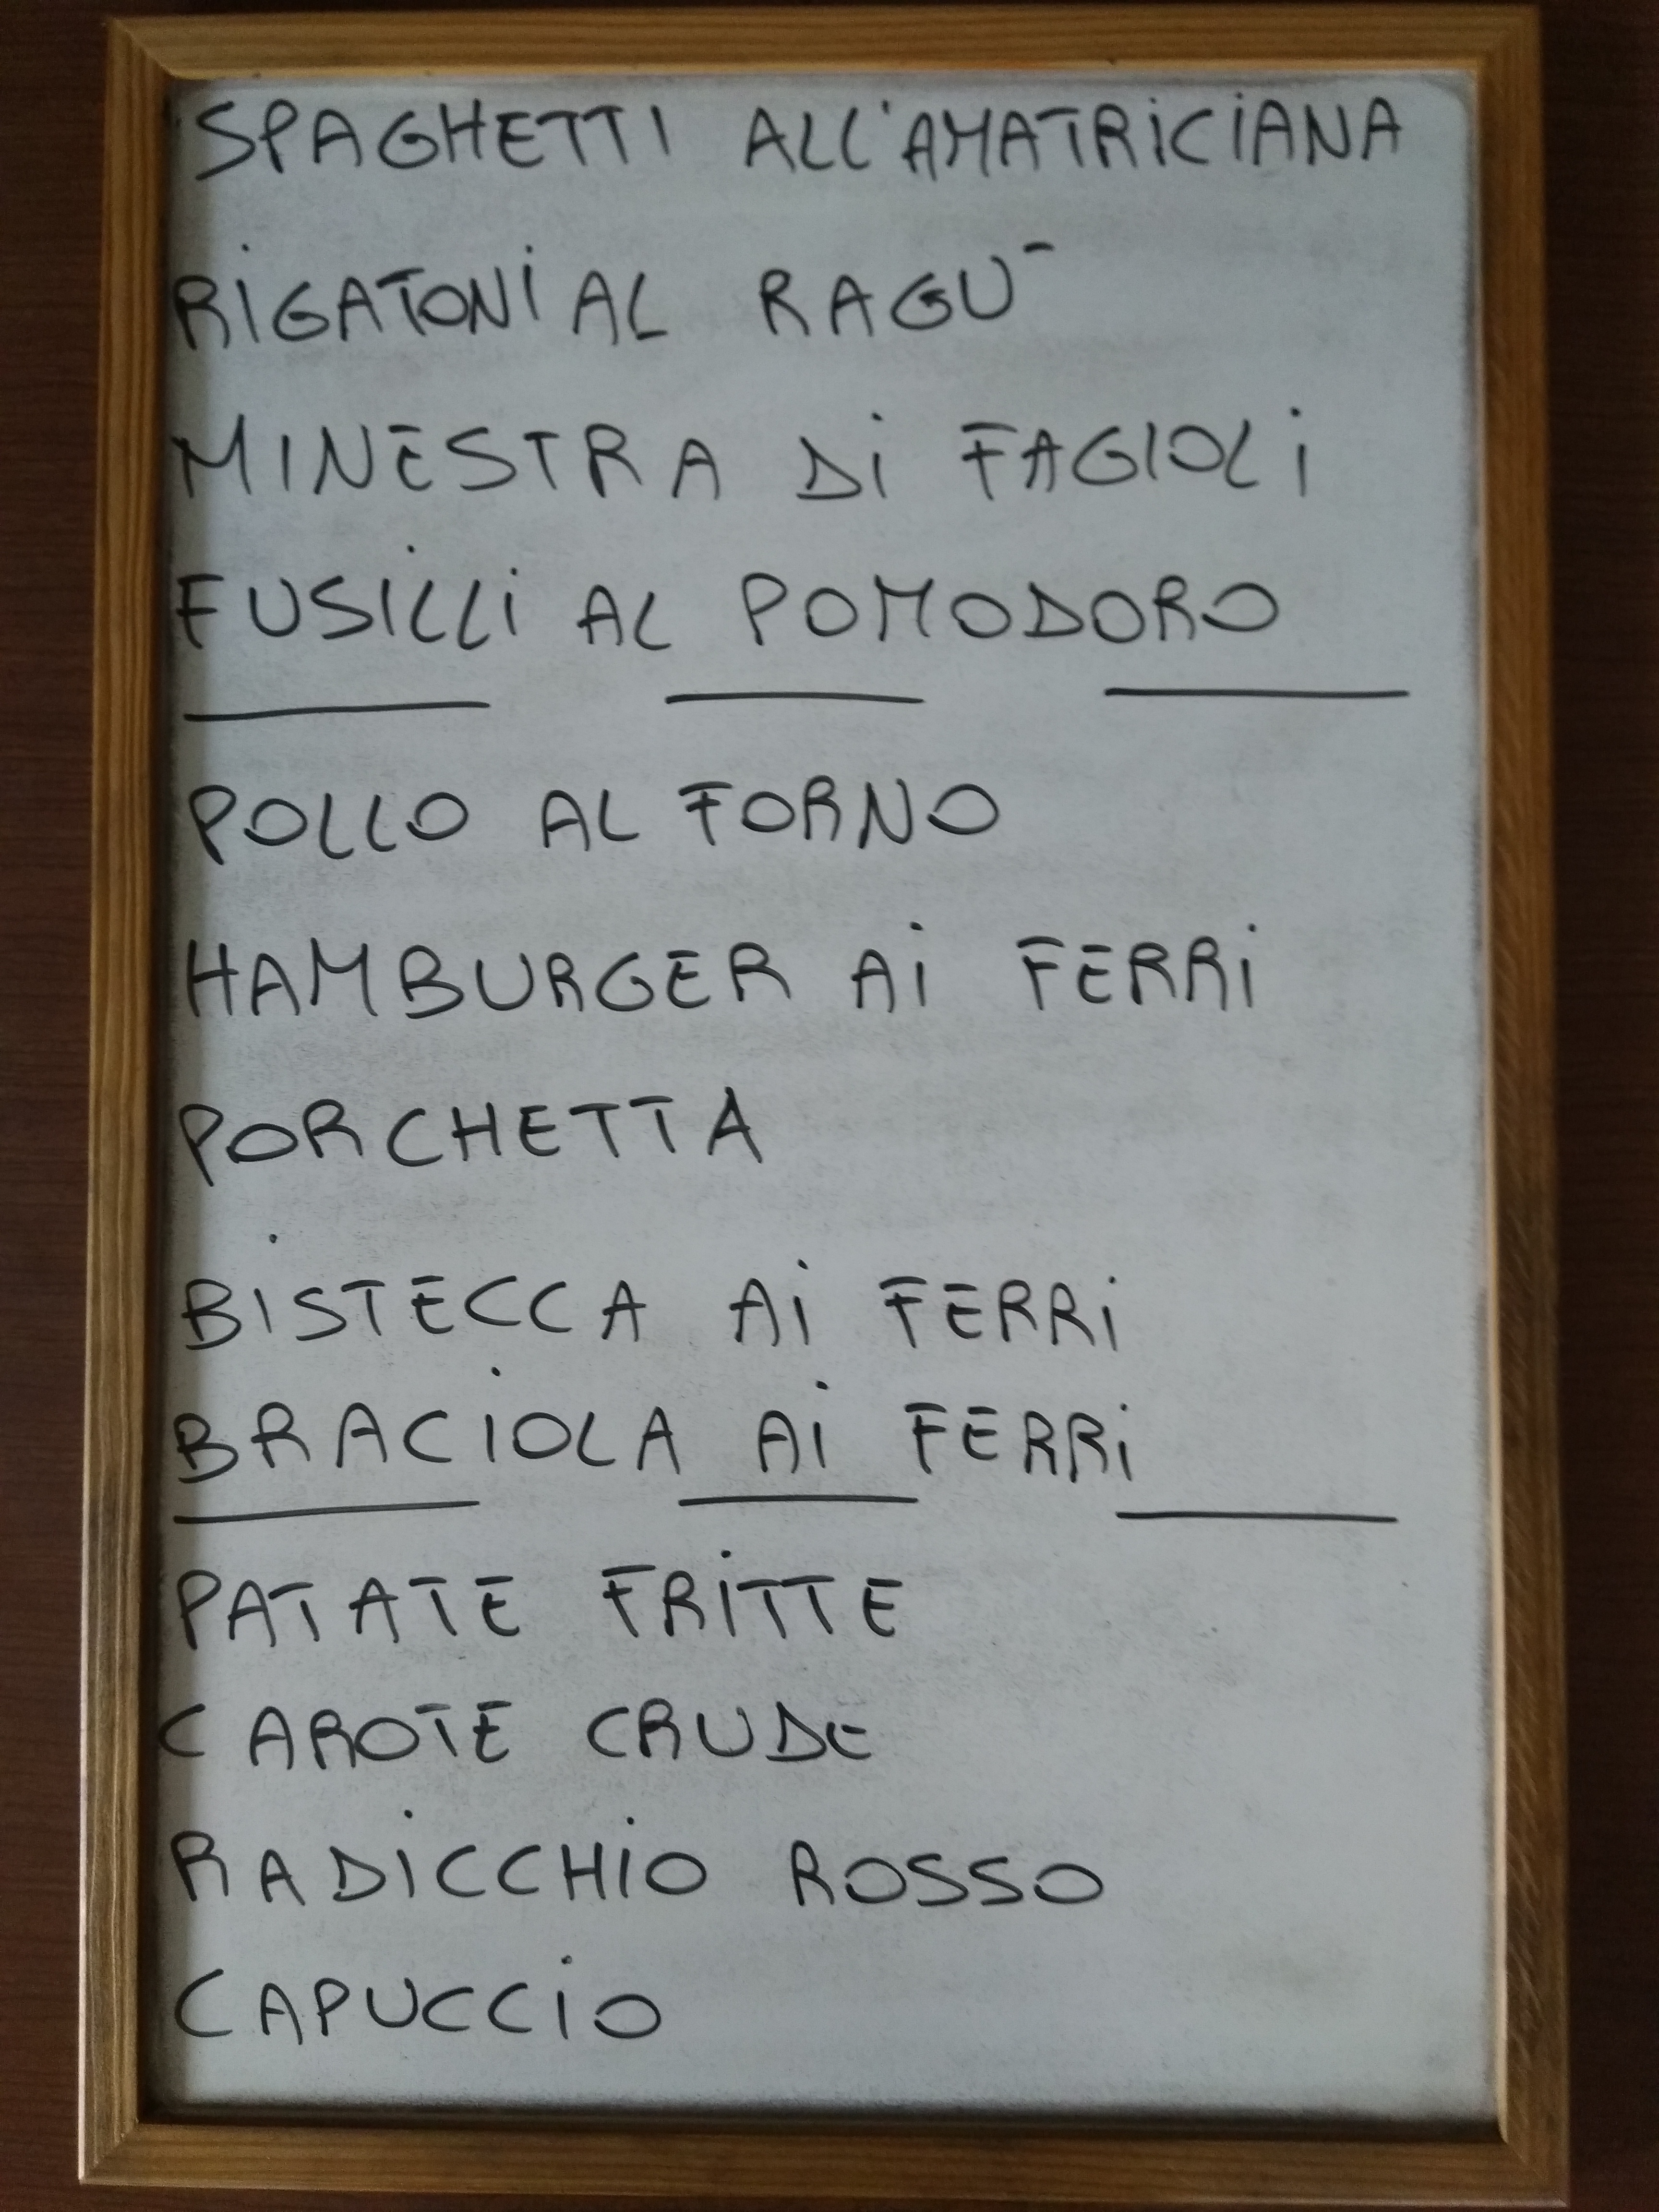 SPAGHETTI ALL'AMATRICIANA
RIGATONI AL RAGU'
MINESTRA DI FAGIOLI
FUSILLI AL POMODORO
POLLO AL FORNO
HAMBURGER AI FERRI
PORCHETTA
BISTECCA AI FERRI
BRACIOLA AI FERRI
PATATE FRITTE
CAROTE CRUDE
RADICCHIO ROSSO
CAPUCCIO